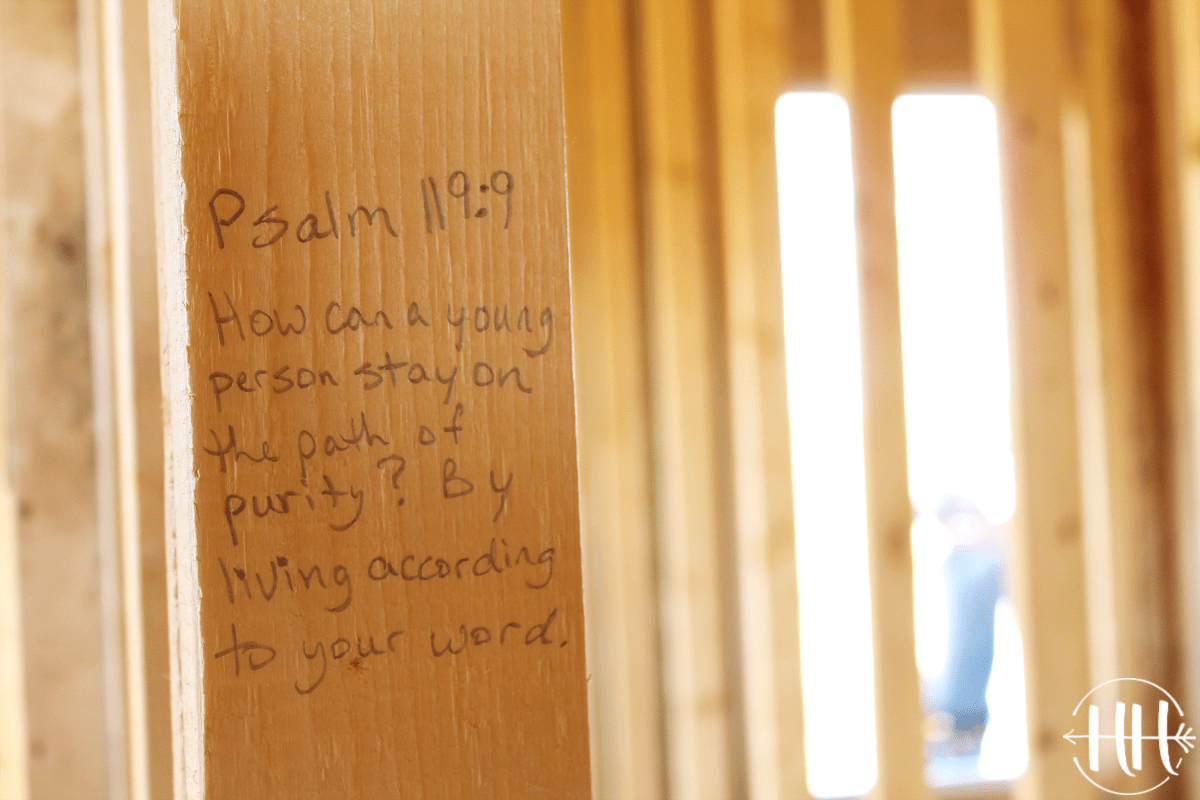 Psalm 119:9
How can a young
person stay on
the path of
purity? By
living according
to your word.
HH